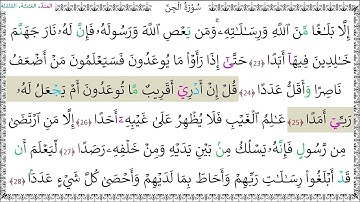 سُورَةُ الْجِنِّ
إِلَّا بَلَٰغًا مِّنَ اللَّهِ وَرِسَٰلَٰتِهِۦ ۚ وَمَن يَعْصِ اللَّهَ وَرَسُولَهُۥ فَإِنَّ لَهُۥ نَارَ جَهَنَّمَ
خَٰلِدِينَ فِيهَآ أَبَدًا ﴿٢٣﴾ حَتَّىٰٓ إِذَا رَأَوْا۟ مَا يُوعَدُونَ فَسَيَعْلَمُونَ مَنْ أَضْعَفُ
نَاصِرًا وَأَقَلُّ عَدَدًا ﴿٢٤﴾ قُلْ إِنْ أَدْرِىٓ أَقَرِيبٌ مَّا تُوعَدُونَ أَمْ يَجْعَلُ لَهُۥ
رَبِّىٓ أَمَدًا ﴿٢٥﴾ عَٰلِمُ الْغَيْبِ فَلَا يُظْهِرُ عَلَىٰ غَيْبِهِۦٓ أَحَدًا ﴿٢٦﴾ إِلَّا مَنِ ارْتَضَىٰ
مِن رَّسُولٍ فَإِنَّهُۥ يَسْلُكُ مِنۢ بَيْنِ يَدَيْهِ وَمِنْ خَلْفِهِۦ رَصَدًا ﴿٢٧﴾ لِّيَعْلَمَ أَن
قَدْ أَبْلَغُوا۟ رِسَٰلَٰتِ رَبِّهِمْ وَأَحَاطَ بِمَا لَدَيْهِمْ وَأَحْصَىٰ كُلَّ شَىْءٍ عَدَدًۢا ﴿٢٨﴾